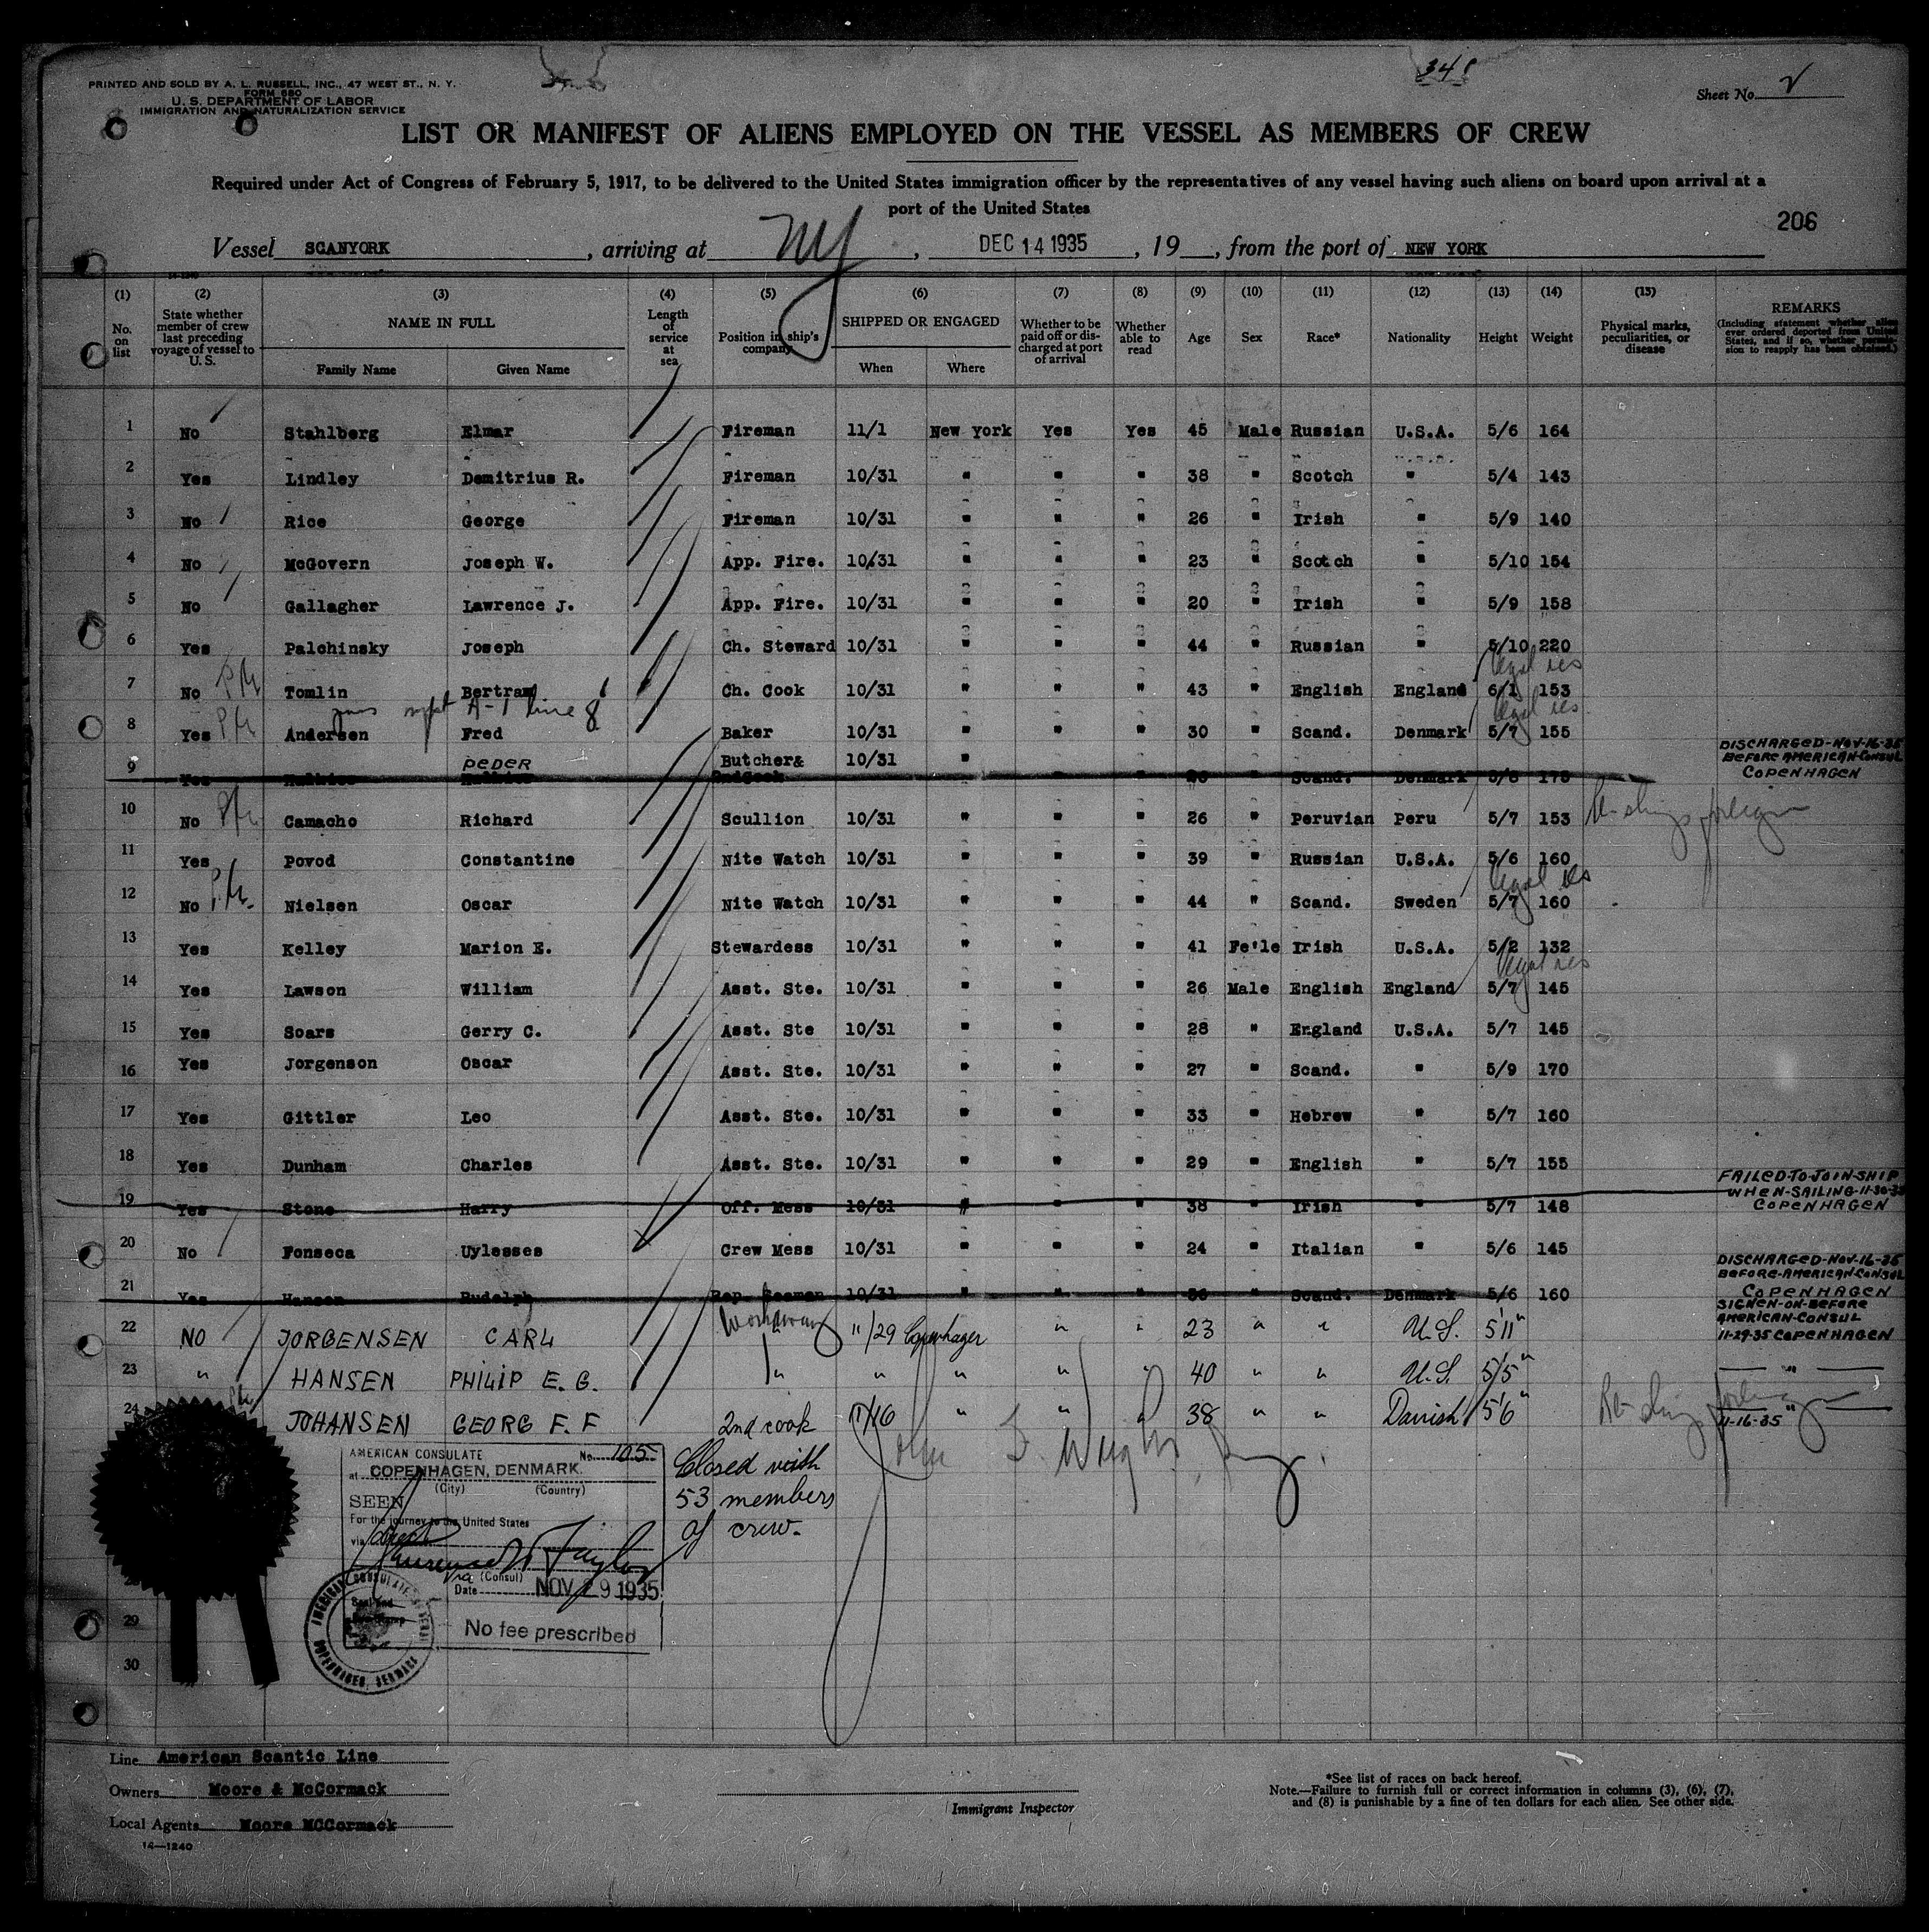 PRINTED AND SOLD BY A. L. RUSSELL, INC., 47 WEST ST., N. Y.
FORM 680
U. S. DEPARTMENT OF LABOR
IMMIGRATION AND NATURALIZATION SERVICE
Sheet No. 2
LIST OR MANIFEST OF ALIENS EMPLOYED ON THE VESSEL AS MEMBERS OF CREW
Required under Act of Congress of February 5, 1917, to be delivered to the United States immigration officer by the representatives of any vessel having such aliens on board upon arrival at a
port of the United States
206
Vessel SCANYORK , arriving at NY , DEC 14 1935 , 19 , from the port of NEW YORK
(1) (2) (3) (4) (5) (6) (7) (8) (9) (10) (11) (12) (13) (14) (15) REMARKS
No. on list State whether member of crew last preceding voyage of vessel to U. S. NAME IN FULL Family Name Given Name Length of service at sea Position in ship's company SHIPPED OR ENGAGED When Where Whether to be paid off or discharged at port of arrival Whether able to read Age Sex Race* Nationality Height Weight Physical marks, peculiarities, or disease (Including statement whether alien ever ordered deported from United States, and if so, whether permission to reapply has been obtained.)
1 No Stahlberg Elmar Fireman 11/1 New York Yes Yes 45 Male Russian U.S.A. 5/6 164
2 Yes Lindley Demitrius R. Fireman 10/31 " " " 38 " Scotch " 5/4 143
3 No Rice George Fireman 10/31 " " " 26 " Irish " 5/9 140
4 No McGovern Joseph W. App. Fire. 10/31 " " " 23 " Scotch " 5/10 154
5 No Gallagher Lawrence J. App. Fire. 10/31 " " " 20 " Irish " 5/9 158
6 Yes Palchinsky Joseph Ch. Steward 10/31 " " " 44 " Russian " 5/10 220
legal res
7 No Tomlin Bertram Ch. Cook 10/31 " " " 43 " English England 6/1 153
A-1 line 8
legal res
8 Yes Andersen Fred Baker 10/31 " " " 30 " Scand. Denmark 5/7 155
9 Yes PEDER Butcher& 10/31 " Scand. Denmark 5/8 DISCHARGED-NOV-16-35
BEFORE AMERICAN-CONSUL
COPENHAGEN
10 No Camacho Richard Scullion 10/31 " " " 26 " Peruvian Peru 5/7 153 foreign
11 Yes Povod Constantine Nite Watch 10/31 " " " 39 " Russian U.S.A. 5/6 160
legal res
12 No Nielsen Oscar Nite Watch 10/31 " " " 44 " Scand. Sweden 5/7 160
13 Yes Kelley Marion E. Stewardess 10/31 " " " 41 Fe'le Irish U.S.A. 5/2 132
legal res
14 Yes Lawson William Asst. Ste. 10/31 " " " 26 Male English England 5/7 145
15 Yes Soars Gerry C. Asst. Ste 10/31 " " " 28 " England U.S.A. 5/7 145
16 Yes Jorgenson Oscar Asst. Ste. 10/31 " " " 27 " Scand. " 5/9 170
17 Yes Gittler Leo Asst. Ste. 10/31 " " " 33 " Hebrew " 5/7 160
18 Yes Dunham Charles Asst. Ste. 10/31 " " " 29 " English " 5/7 155
19 Yes Stone Harry Off. Mess 10/31 " " " 38 " Irish " 5/7 148 FAILED-TO-JOIN-SHIP
WHEN-SAILING-11-30-35
COPENHAGEN
20 No Fonseca Uylesses Crew Mess 10/31 " " " 24 " Italian " 5/6 145
21 Yes Hansen Rudolph Rep. Seaman 10/31 " " " 36 " Scand. Denmark 5/6 160 DISCHARGED-NOV-16-35
BEFORE-AMERICAN-CONSUL
COPENHAGEN
22 NO JORGENSEN CARL Workaway 11/29 Copenhagen " " 23 " " U.S. 5'11" SIGNEN-ON-BEFORE
AMERICAN-CONSUL
11-29-35 COPENHAGEN
23 " HANSEN PHILIP E. G. " " " " " 40 " " U.S. 5/5" "
24 JOHANSEN GEORG F. F 2nd cook 11/16 " " " 38 " " Danish 5'6" "
11-16-35
AMERICAN CONSULATE No. 105
at COPENHAGEN, DENMARK.
(City) (Country)
SEEN
For the journey to the United States
via direct
(Consul)
Date NOV 29 1935
No fee prescribed
Closed with
53 members
of crew.
29
30
Line American Scantic Line
Owners Moore & McCormack
Local Agents Moore MCCormack
14—1240
Immigrant Inspector
*See list of races on back hereof.
Note.—Failure to furnish full or correct information in columns (3), (6), (7),
and (8) is punishable by a fine of ten dollars for each alien. See other side.